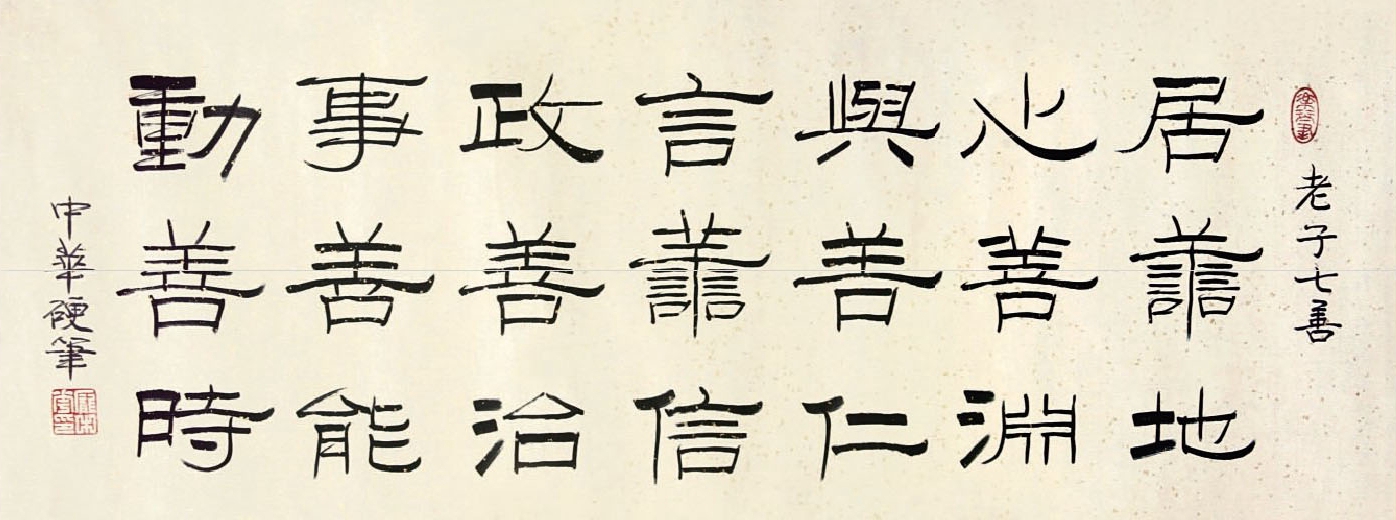 老子七善
居善地
心善淵
與善仁
言善信
政善治
事善能
動善時
中華硬筆